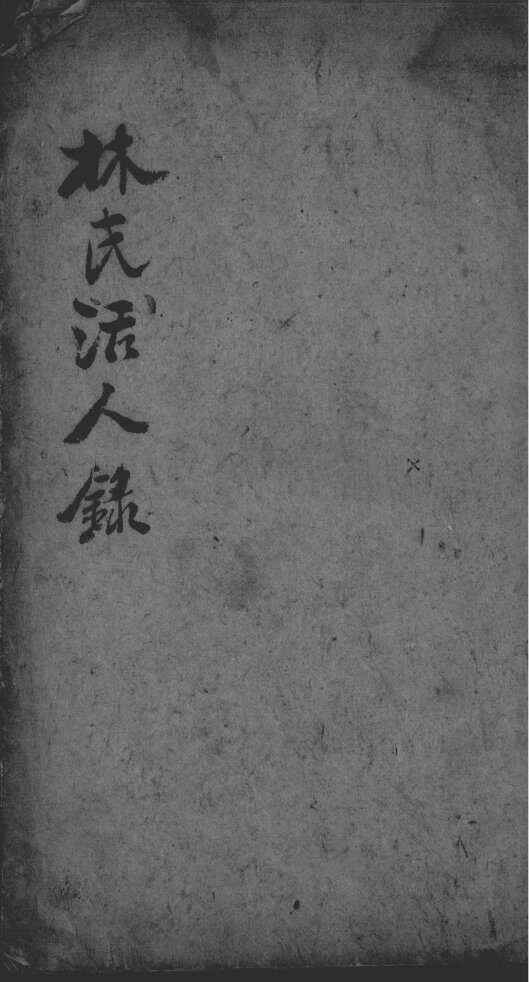 林氏活人錄